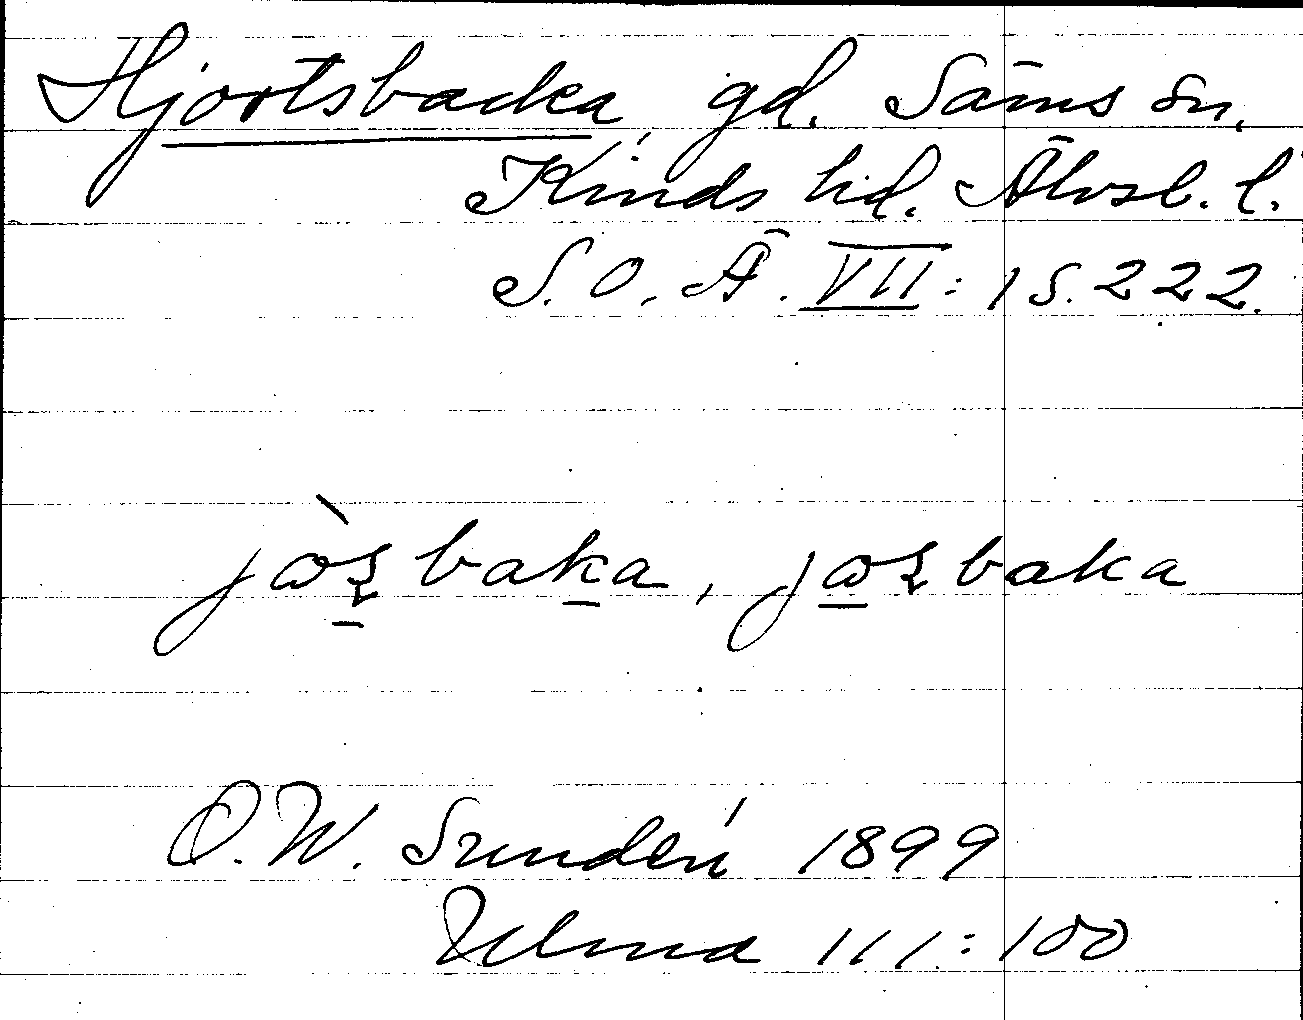 Hjortsbacka, gd. Säms sn,
Kinds hd. Älvsb. l.
S.O.Ä. VII: 1 S. 222.
jòʂbaka, jɷʂbaka
O.W. Sundén 1899
Ulma 111:100